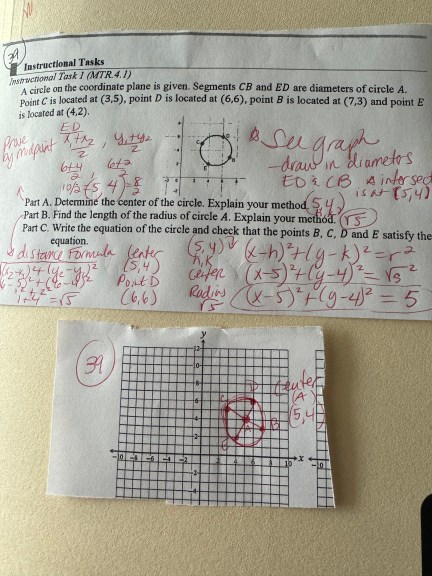 39
Instructional Tasks
Instructional Task 1 (MTR.4.1)
A circle on the coordinate plane is given. Segments CB and ED are diameters of circle A.
Point C is located at (3,5), point D is located at (6,6), point B is located at (7,3) and point E
is located at (4,2).
Prove by midpoint
ED
x₁+x₂/2 , y₁+y₂/2
6+4/2 , 6+2/2
10/2 = (5, 4) = 8/2
See graph
draw in diameters
ED & CB A intersect
is at (5,4)
Part A. Determine the center of the circle. Explain your method. (5,4)
Part B. Find the length of the radius of circle A. Explain your method. √5
Part C. Write the equation of the circle and check that the points B, C, D and E satisfy the
equation.
distance Formula
1²+2² = √5
Center
(5,4)
Point D
(6,6)
(5,4)
h,k
Center
Radius
√5
(x-h)²+(y-k)²=r²
(x-5)²+(y-4)²=√5²
(x-5)²+(y-4)² = 5
39
y
12
10
8
6
4
2
-10 -8 -6 -4 -2 2 4 6 8 10 x
-2
-4
C D
A B
Center
(A)
(5,4)
-10